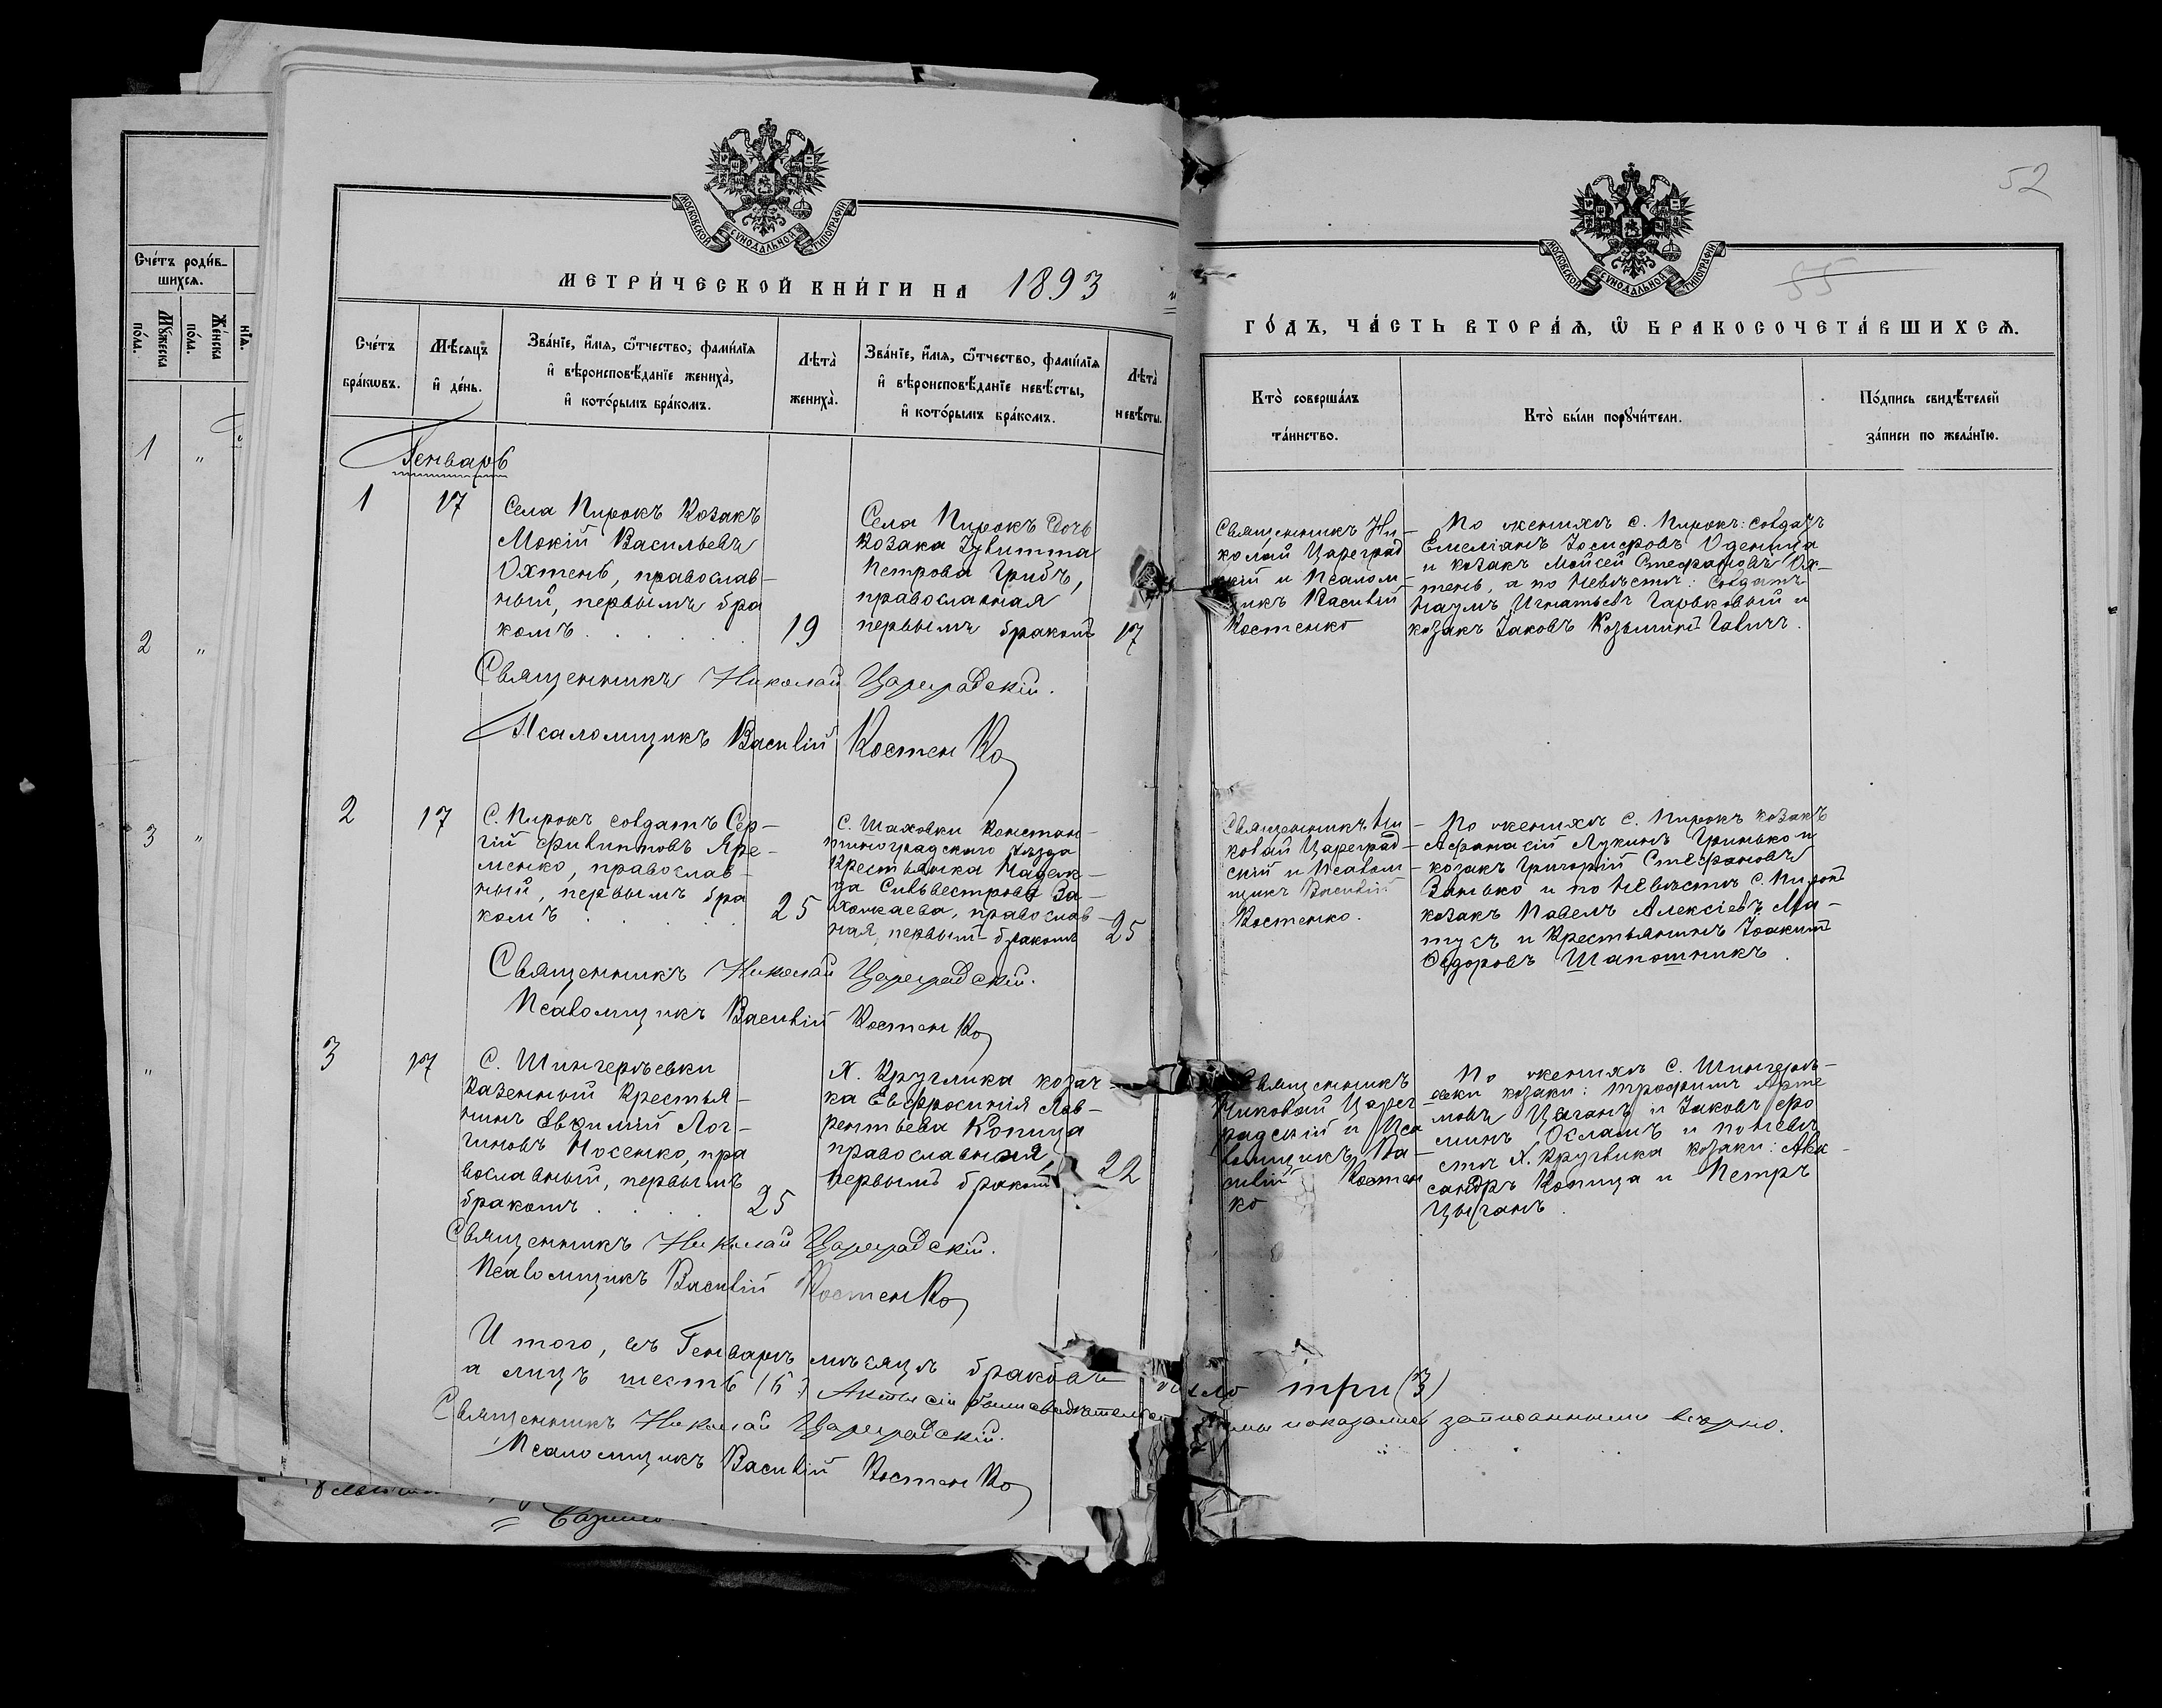 52
55
МОСКОВСКОЙ СѴНОДАЛЬНОЙ ТИПОГРАФІИ
МОСКОВСКОЙ СѴНОДАЛЬНОЙ ТИПОГРАФІИ
МЕТРИ́ЧЕСКОЙ КНИ́ГИ НА 1893
ГО́ДЪ, ЧА́СТЬ ВТОРА́Ѧ, Ѽ БРАКОСОЧЕТА́ВШИХСѦ.
Сче́тъ роди́в-
шихсѧ.
Мꙋ́жеска
по́ла.
Же́нска
по́ла.
1 „
2 „
3 „
„
Сче́тъ
бра́кѡвъ.
Мѣ́сѧцъ
и҆ де́нь.
Зва́нїе, и҆́мѧ, ѻ҆́тчество, фами́лїѧ
и҆ вѣроисповѣ́данїе жениха̀,
и҆ кото́рымъ бра́комъ.
Лѣта̀
жениха̀.
Зва́нїе, и҆́мѧ, ѻ҆́тчество, фами́лїѧ
и҆ вѣроисповѣ́данїе невѣ́сты,
и҆ кото́рымъ бра́комъ.
Лѣта̀
невѣ́сты.
Кто̀ соверша́лъ
та́инство.
Кто̀ бы́ли порꙋчи́тели.
По́дпись свидѣ́телей
за́писи по жела́нїю.
Генварь
1
17
Села Пирокъ Козакъ
Мокій Васильевъ
Охтень, православ-
ный, первымъ бра
комъ . . . .
19
Села Пирокъ дочь
Козака Іулитта
Петрова Грибъ,
православная
первымъ бракомъ
17
Священникъ Ни-
колай Цареград
скій и Псалом-
щикъ Василій
Костенко
По женихѣ с. Пирокъ: солдатъ
Емеліанъ Іосифовъ Оденица
и козакъ Мойсей Стефановъ Ох-
тень, а по невѣстѣ: солдатъ
Наумъ Игнатьевъ Гарьковый и
козакъ Іаковъ Козьминъ Гавичъ.
Священникъ Николай Цареградскій.
Псаломщикъ Василій Костенко
2
17
С. Пирокъ солдатъ Сер-
гій Филипповъ Яре-
менко, православ-
ный, первымъ бра
комъ . . . .
25
С. Шаховки Констан-
тиноградскаго уѣзда
крестьянка Надеж-
да Сильвестрова За-
хожаева, православ-
ная, первымъ бракомъ
25
Священникъ Ни-
колай Цареград-
скій и Псалом-
щикъ Василій
Костенко.
По женихѣ с. Пирокъ козакъ
Афанасій Лукинъ Гринько и
козакъ Григорій Стефановъ
Занько и по невѣстѣ с. Пирокъ
козакъ Павелъ Алексіевъ Ма-
тусъ и крестьянинъ Іоакимъ
Ѳедоровъ Шапошникъ.
Священникъ Николай Цареградскій.
Псаломщикъ Василій Костенко
3
17
С. Шингерѣевки
казенный крестья-
нинъ Евѳимій Лог-
гиновъ Носенко, пра
вославный, первымъ
бракомъ . . . .
25
Х. Круглика козач
ка Евфросинія Лав-
рентьева Копица
православная,
первымъ бракомъ
22
Священникъ
Николай Царег
радскій и Пса
ломщикъ Ва-
силій Костен
ко
По женихѣ с. Шингерѣ-
евки козаки: Трофимъ Арте
мовъ Цыганъ и Іаковъ Фо
минъ Осламъ и по невѣ
стѣ х. Круглика козаки: Алек-
сандръ Копица и Петръ
Цыганъ.
Священникъ Николай Цареградскій.
Псаломщикъ Василій Костенко
И того, въ Генварѣ мѣсяцѣ браковъ было три (3)
а лицъ шесть (6.) Акты сіи были свидѣтельст и показались записанными вѣрно.
Священникъ Николай Цареградскій.
Псаломщикъ Василій Костенко